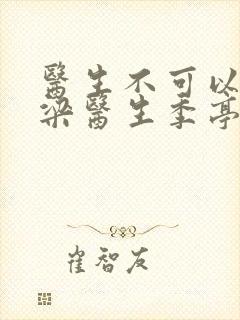 醫生不可以
梁醫生季亭
崔智友